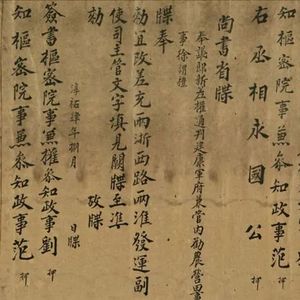 知樞密院事兼參知政事范 押
右丞相永國公 押
尚書省牒
奉議郎新差權通判建康軍府兼管內勸農營田
事徐謂禮
牒奉
勅宜改差充兩浙西路兩淮發運副
使司主管文字填見闕牒至準
勅 故牒
淳祐肆年捌月 日牒
簽書樞密院事兼權參知政事劉 押
知樞密院事兼參知政事范 押